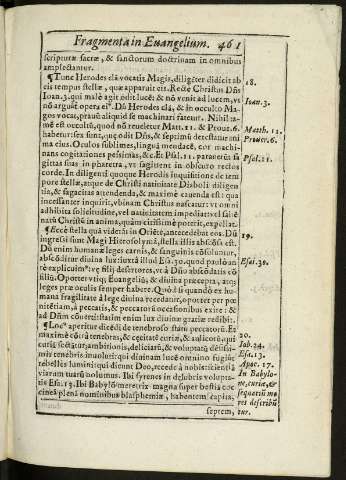 Fragmenta in Euangelium. 461
scripturæ sacræ, & sanctorum doctrinam in omnibus
amplectantur.
¶Tunc Herodes clã vocatis Magis, diligẽter didicit ab
eis tempus stellæ, quæ apparuit eis. Recte Christus Dñs
Ioan.3. qui malè agit odit lucẽ: & nõ venit ad lucem, vt
nõ arguãt opera ei9. Dũ Herodes clã, & in occulto Ma-
gos vocat, prauũ aliquid se machinari fatetur. Nihil ta-
mẽ est occultũ, quod nõ reueletur Matt.11. & Prouer.6.
habentur: sex sunt, quę odit Dñs, & septimũ detestatur ani
ma eius. Oculos sublimes, linguã mendacẽ, cor machi-
nans cogitationes pessimas, &c. Et Psal.11. parauerũt sa
gittas suas in pharetra, vt sagittent in obscuro rectos
corde. In diligenti quoque Herodis inquisitione de tem
pore stellæ, atque de Christi natiuitate Diaboli diligen
tia, & sagacitas attendenda, & maximè cauenda est: qui
incessanter inquirit, vbinam Christus nascatur: vt omni
adhibita solicitudine, vel natiuitatem impediat: vel iã nã
tum Christũ in animis, quàm citissimè poterit, expellat.
¶Ecce stella quã viderãt in Oriẽte, antecedebat eos. Dũ
ingressi sunt Magi Hierosolymã, stella illis abscõsa est.
Dũ enim humanæ leges carnis, & sanguinis cõsulũtur,
abscõditur diuina lux: iuxtà illud Esa.30.
cõ
siliũ. Oportet vtiq; Euangeliũ, & diuina præcepta, atq;
leges præ oculis semper habere. Quòd si quandò ex hu-
mana fragilitate à lege diuina recedatur, oportet per pœ
nitẽtiam, à peccatis, & peccatorũ occasionibus exire: &
ad Dñm cõuerti: statim enim lux diuinæ gratiæ redibit.
¶Loc9 aperitur dicẽdi de tenebroso statu peccatorũ. Et
maximè
curiã sectãtur, ambitionis, deliciarũ, & voluptatũ dẽsissi-
mis tenebris inuoluti: qui diuinam lucẽ omnino fugiũt
rebelles lumini: qui dicunt Deo, recede à nobis: scientiã
viarum tuarũ nolumus. Ibi syrenes in delubris volupta-
tis Esa.13. Ibi Babylõ meretrix magna super bestiã coc
cineã plenã nominibus blasphemiæ, habentem capita,
septem,
18.
Ioan.3.
Matth. 11.
Prouer.6.
Psal.11.
19.
Esai.30.
20.
Iob.24.
Esa.13.
Apoc.17.
In Babylo-
ne, curiæ, &
sequentiũ mo
res describũ
tur.